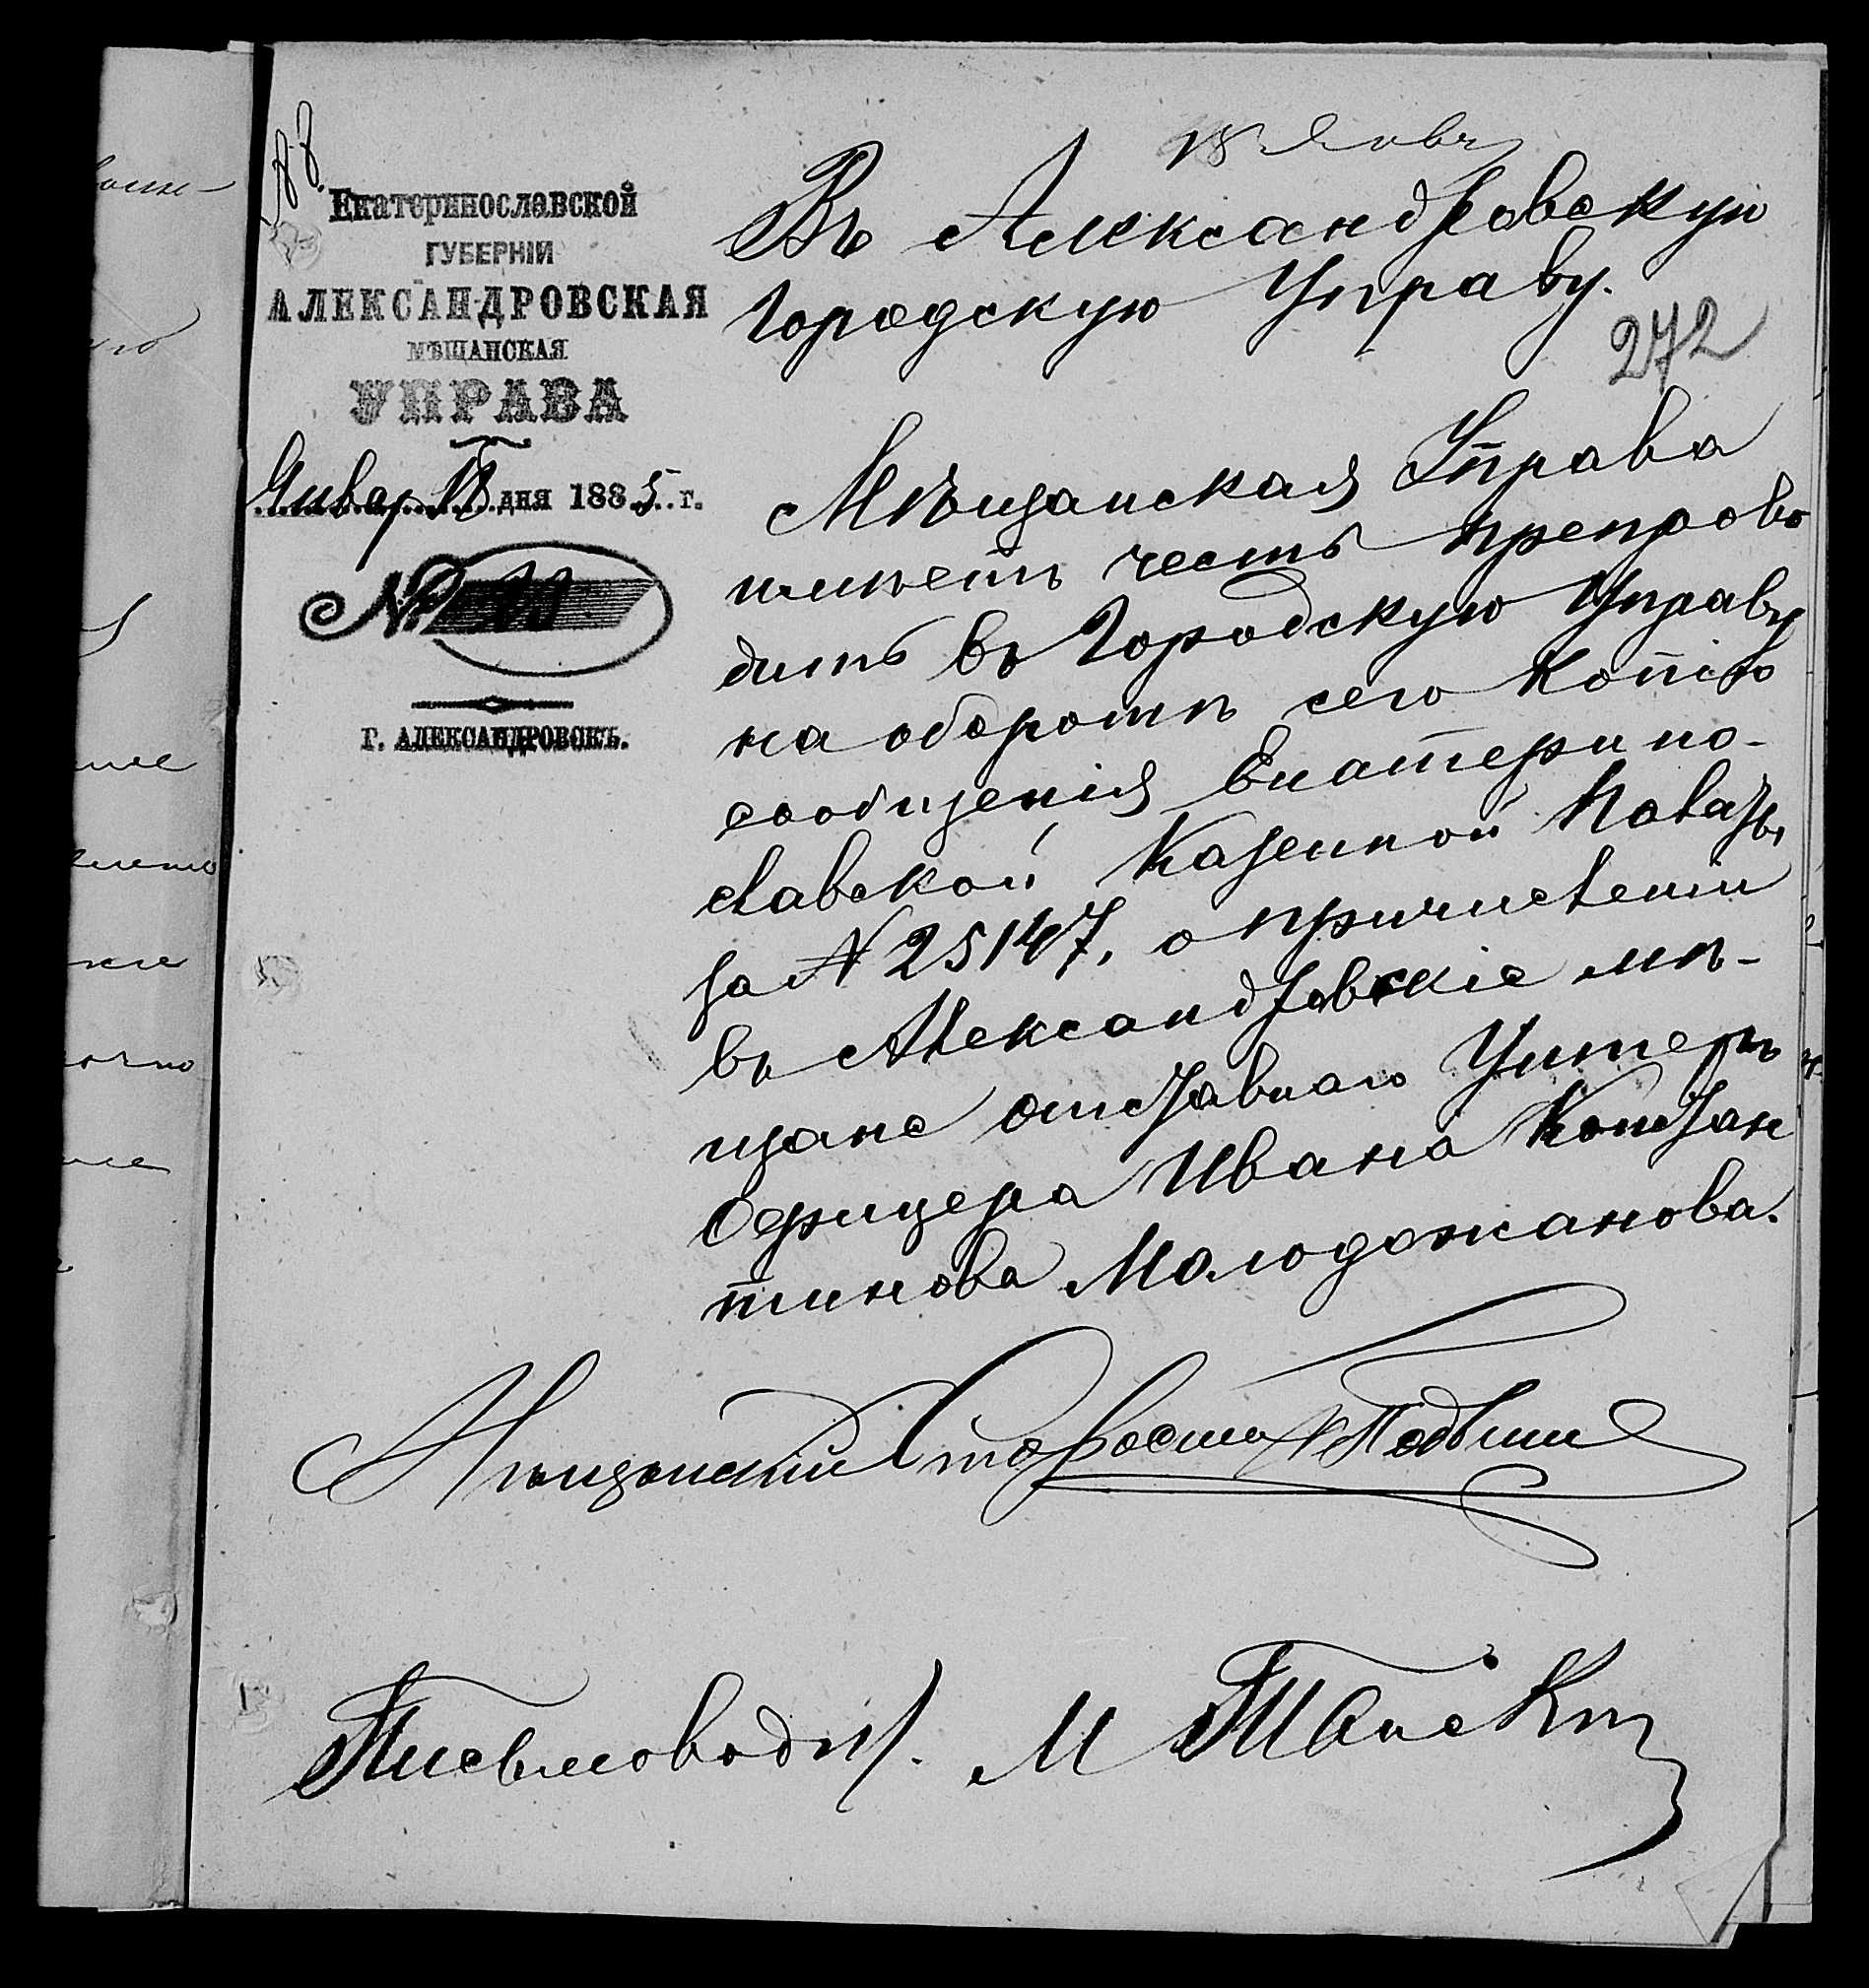 18 Янв
88.
Екатеринославской
ГУБЕРНІИ
АЛЕКСАНДРОВСКАЯ
МѢЩАНСКАЯ
УПРАВА
Январ 18 дня 1885 г.
№
Г. АЛЕКСАНДРОВСКЪ.
Въ Александровскую
Городскую Управу.
272
Мѣщанская Управа
имѣетъ честь препрово
дить въ Городскую Управу
на оборотѣ сего копію
сообщенія Екатерино-
славской Казенной Палаты
за № 25147, о причисленіи
въ Александровскіе мѣ-
щане отставнаго Унтеръ
Офицера Ивана Констан
тинова Молодожанова.
Мѣщанскій Староста
Письмоводит. М